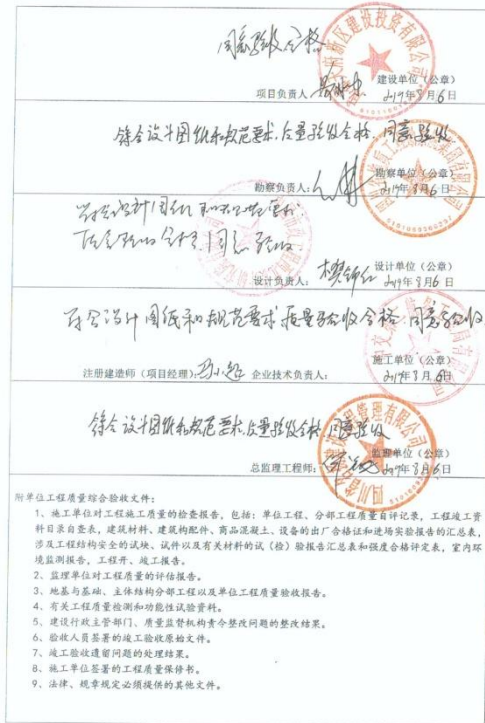 同意验收合格
建设单位（公章）
项目负责人
2019年8月6日
符合设计图纸和规范要求，质量验收合格，同意验收
勘察单位（公章）
勘察负责人：
2019年8月6日
设计图纸和规范要求
验收合格，同意验收
设计单位（公章）
设计负责人：
2019年8月6日
符合设计图纸和规范要求，质量验收合格 同意验收
施工单位（公章）
注册建造师（项目经理）： 企业技术负责人：
2019年8月6日
符合设计图纸和规范要求，质量验收合格，同意验收
监理单位（公章）
总监理工程师：
2019年8月6日
附单位工程质量综合验收文件：
1、施工单位对工程施工质量的检查报告，包括：单位工程、分部工程质量自评记录，工程竣工资
料目录自查表，建筑材料、建筑构配件、商品混凝土、设备的出厂合格证和进场实验报告的汇总表，
涉及工程结构安全的试块、试件以及有关材料的试（检）验报告汇总表和强度合格评定表，室内环
境监测报告，工程开、竣工报告。
2、监理单位对工程质量的评估报告。
3、地基与基础、主体结构分部工程以及单位工程质量验收报告。
4、有关工程质量检测和功能性试验资料。
5、建设行政主管部门、质量监督机构责令整改问题的整改结果。
6、验收人员签署的竣工验收原始文件。
7、竣工验收遗留问题的处理结果。
8、施工单位签署的工程质量保修书。
9、法律、规章规定必须提供的其他文件。